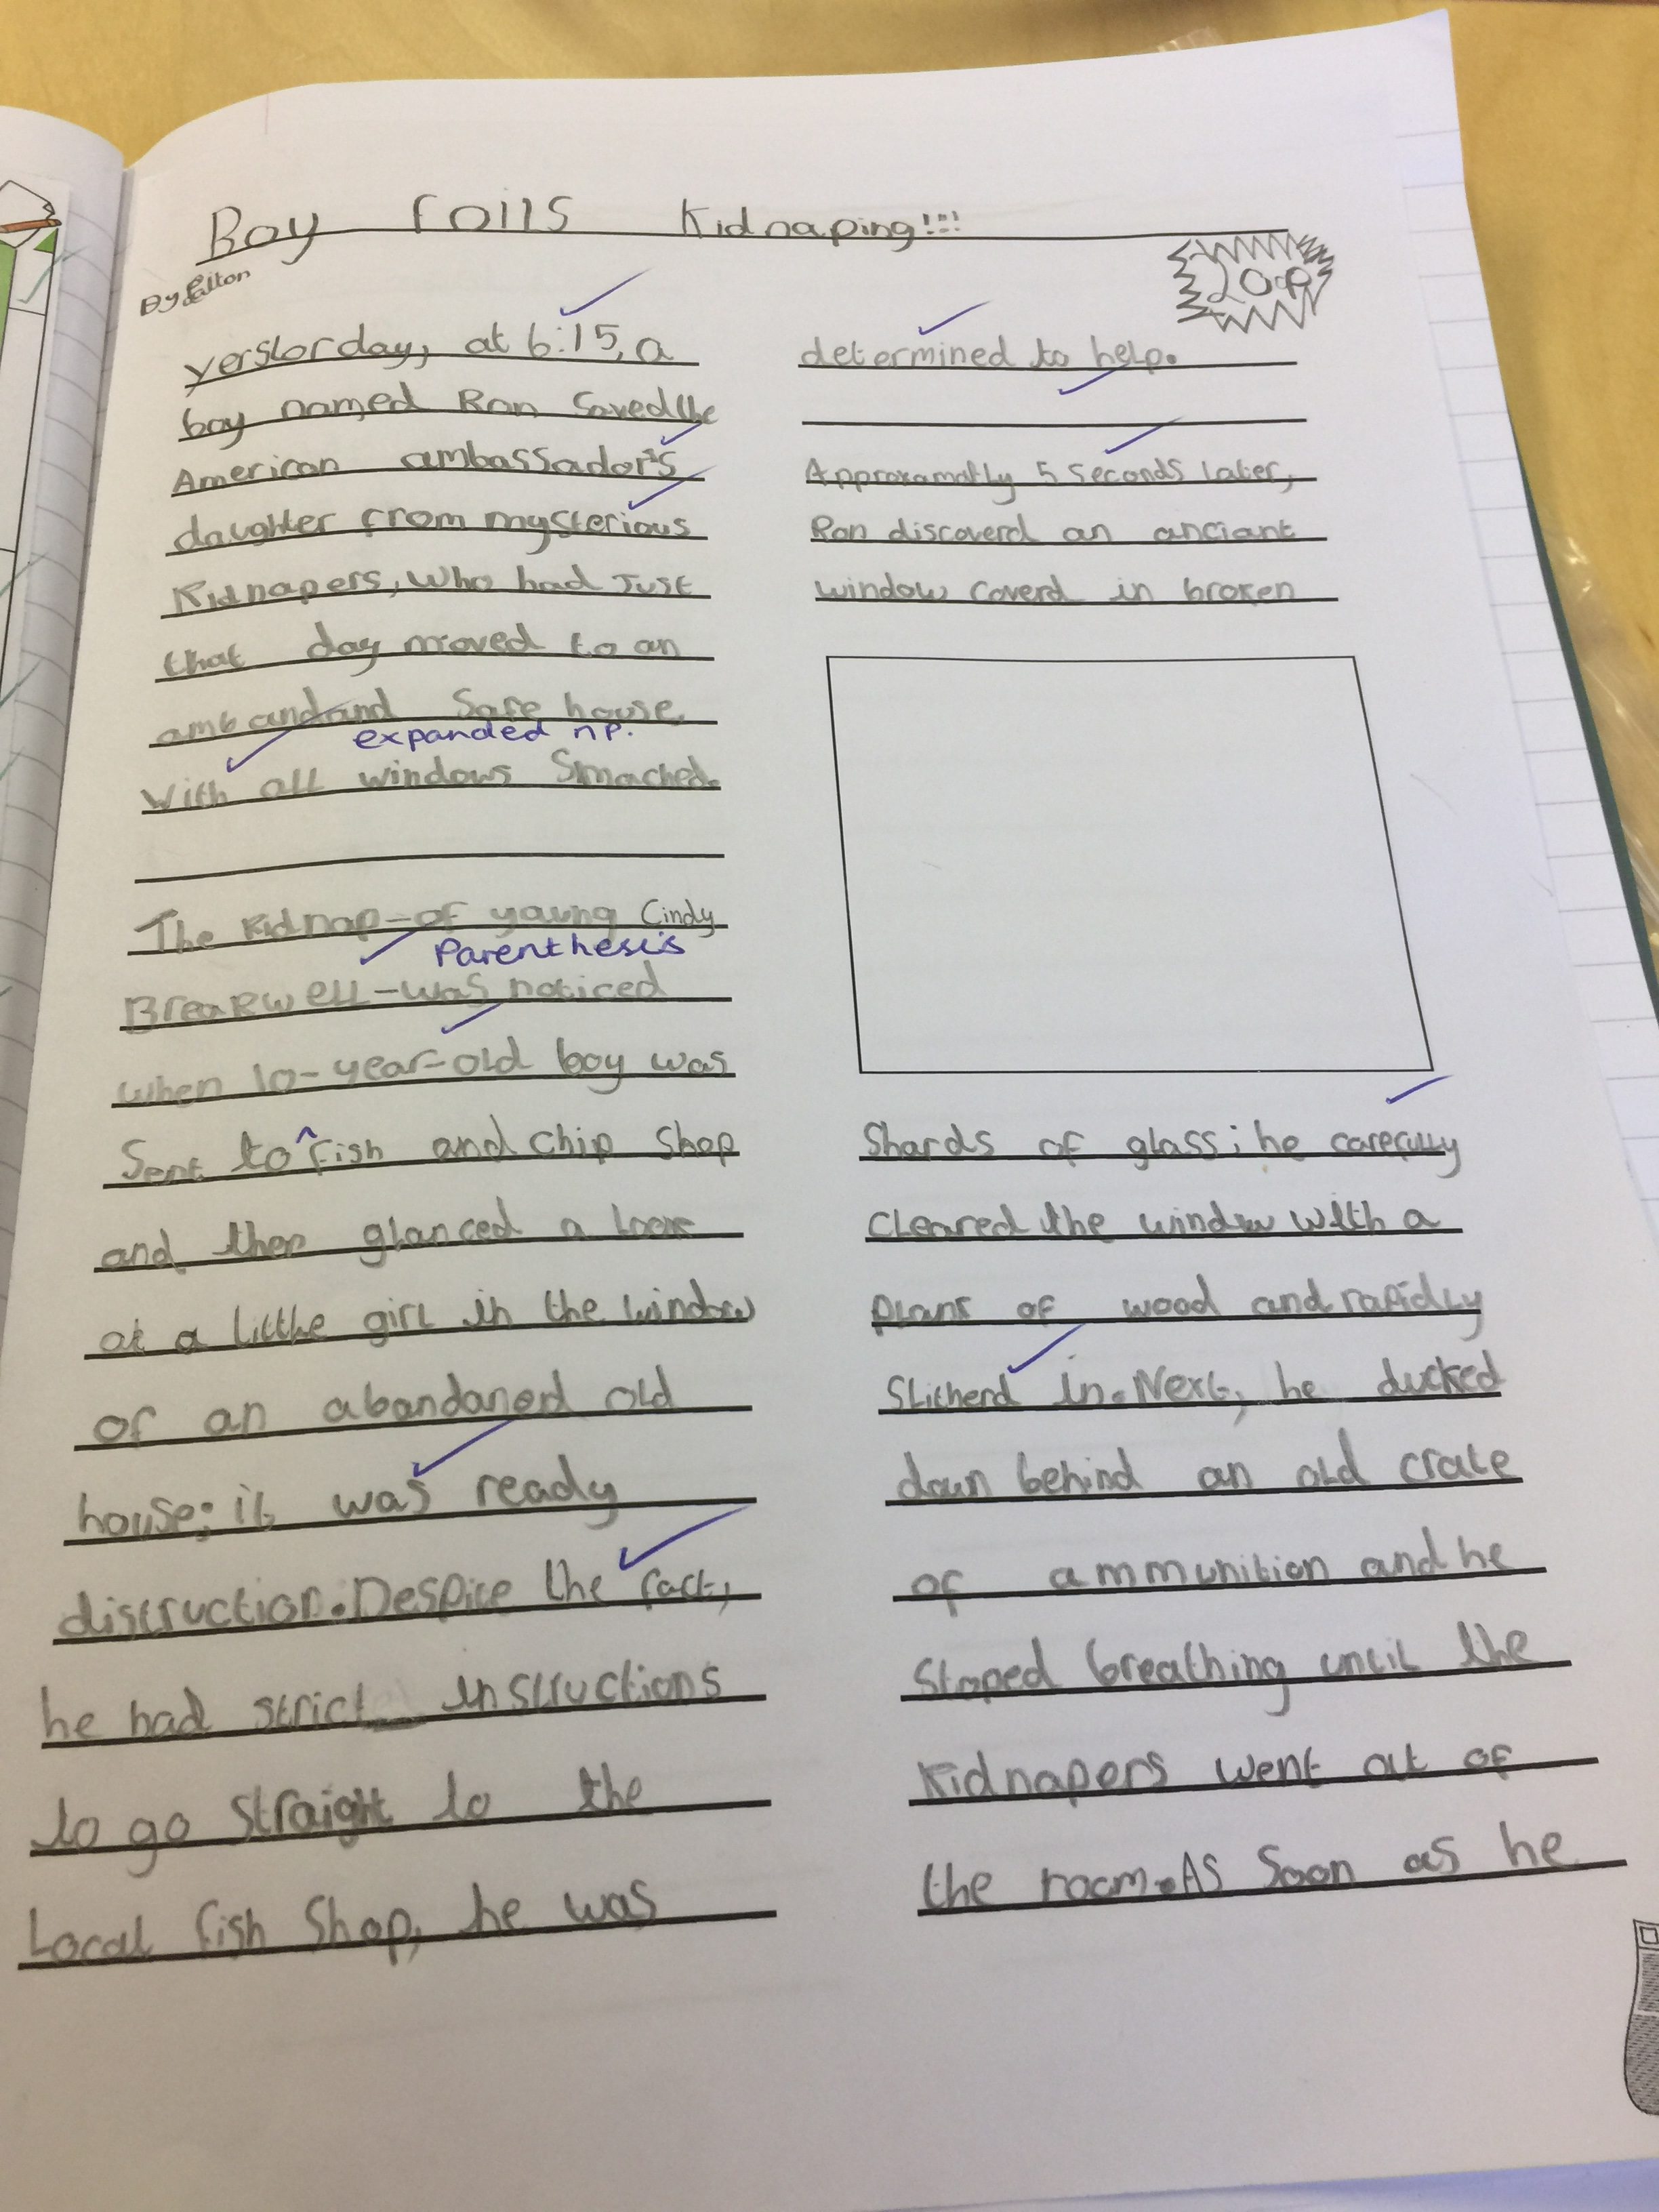 Boy foils Kidnaping!!!!
By Elton
20p
yerstorday, at 6:15, a
boy named Ron Saved the
American ambassador's
daughter from mysterious
Kidnapers, Who had Just
that day moved to an
ambandand Safe house
expanded np.
With all windows Smached.
The Kidnap-of young Cindy
Parenthesis
Breakwell-was noticed
when 10-year-old boy was
Sent to ^ fish and chip Shop
and then glanced a look
at a little girl in the window
of an abandaned old
house; it was ready
distruction. Despite the fact,
he had strict instructions
to go straight to the
Local fish Shop, he was
determined to help.
Approxamatly 5 Seconds later,
Ron discoverd an anciant
window coverd in broken
Shards of glass; he carefully
cleared the window with a
plank of wood and rapidly
Slitherd in. Next, he ducked
down behind an old crate
of ammunition and he
Stoped breathing until the
Kidnapers went out of
the room. As Soon as he